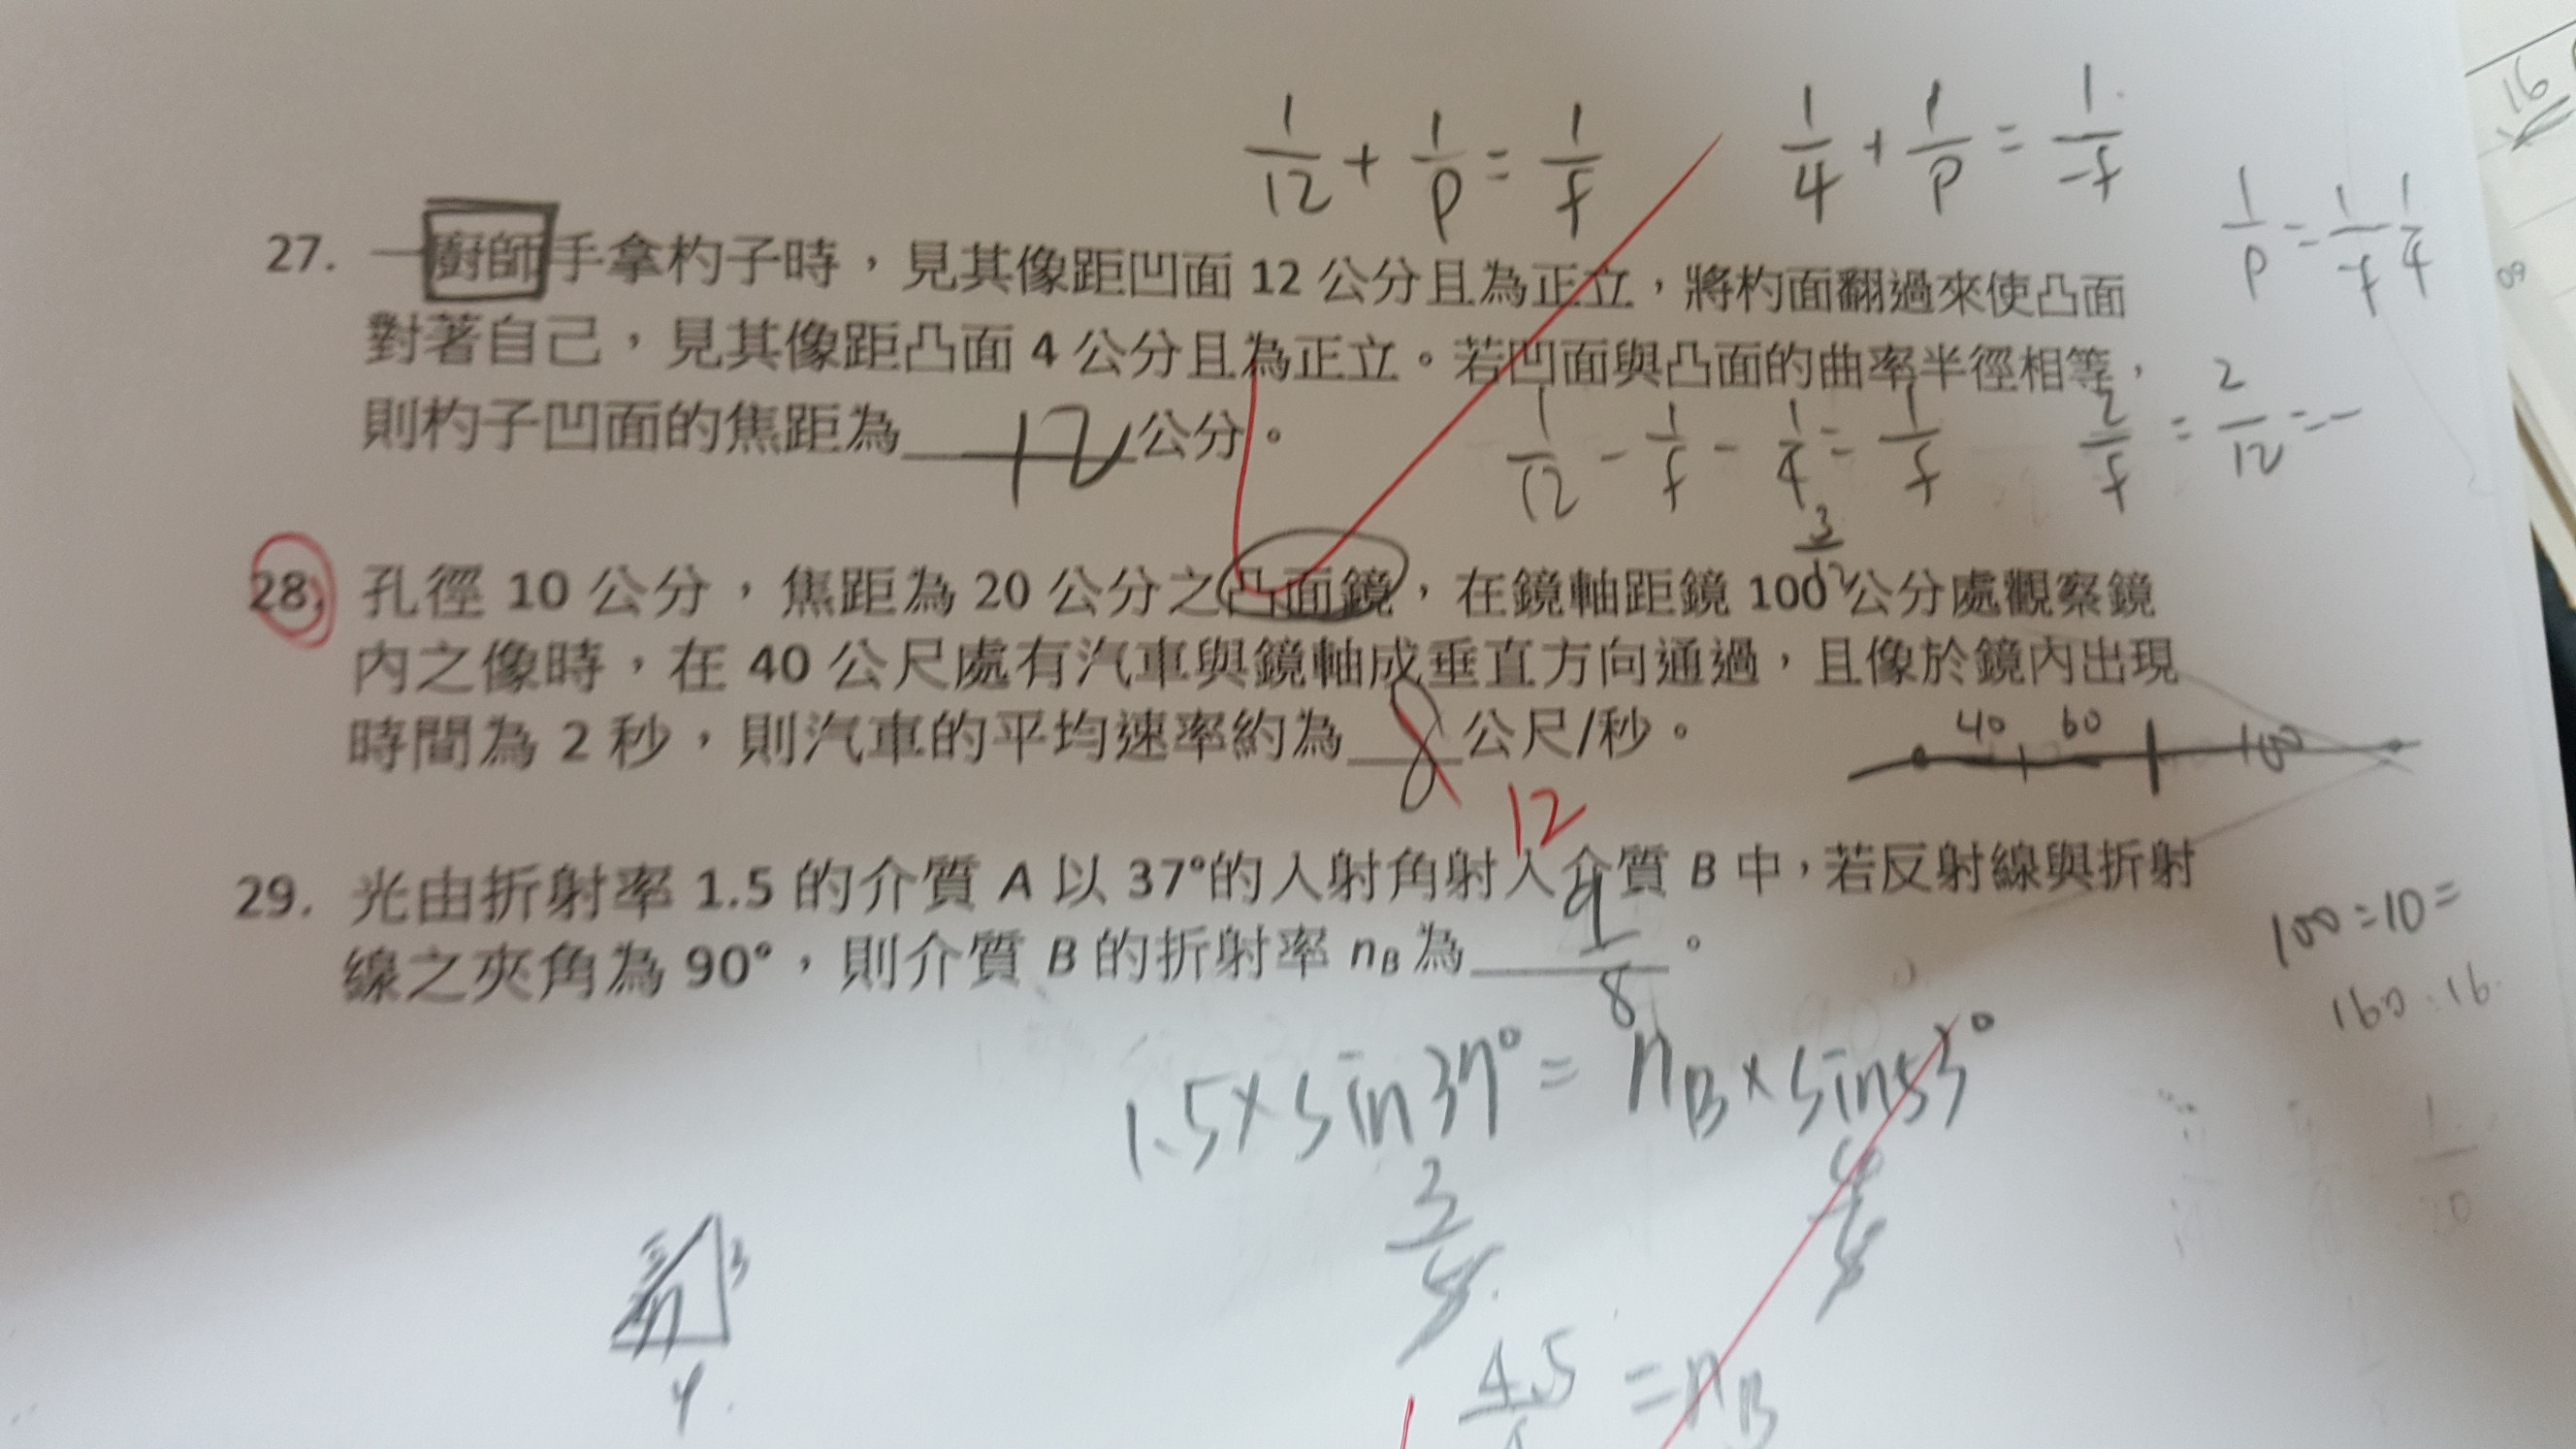 1/12 + 1/p = 1/f
1/4 + 1/p = 1/-f
1/p = 1/-f - 1/4
27. 一廚師手拿杓子時，見其像距凹面 12 公分且為正立，將杓面翻過來使凸面
對著自己，見其像距凸面 4 公分且為正立。若凹面與凸面的曲率半徑相等，
則杓子凹面的焦距為 12 公分。
1/12 - 1/f - 1/4 = 1/f
2/f = 2/12 = -
3/12
28. 孔徑 10 公分，焦距為 20 公分之凸面鏡，在鏡軸距鏡 100 公分處觀察鏡
內之像時，在 40 公尺處有汽車與鏡軸成垂直方向通過，且像於鏡內出現
時間為 2 秒，則汽車的平均速率約為 8 公尺/秒。
40 60 100
12
29. 光由折射率 1.5 的介質 A 以 37°的入射角射入介質 B 中，若反射線與折射
線之夾角為 90°，則介質 B 的折射率 nB 為 9/8 。
100:10=
160:16
1.5×sin37°= nB×sin53°
3/5
4/5
3
4
4.5
=nB
16